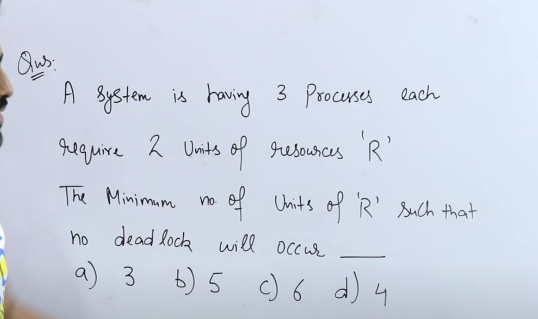 Qus:
A system is having 3 Processes each
require 2 Units of resources 'R'
The Minimum no. of Units of 'R' such that
no deadlock will occur ___
a) 3 b) 5 c) 6 d) 4